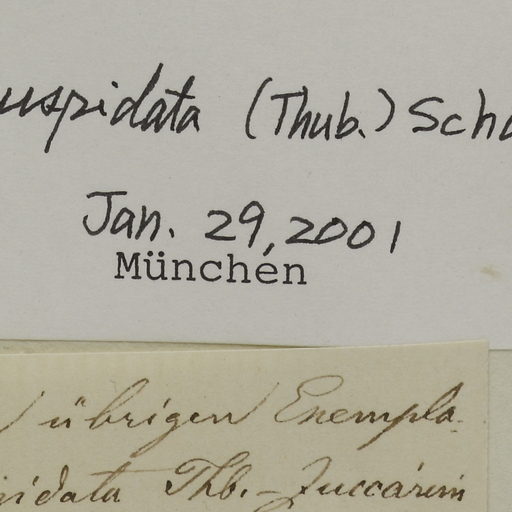 uspidata (Thub.) Scho
Jan. 29, 2001
München
übrigen Exempla-
idata Thb. - Zuccarini